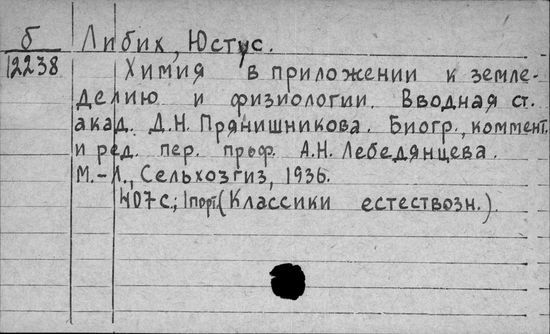 б
12238
Либих, Юстус.
Химия в приложении к земле-
делию и физиологии. Вводная ст.
акад. Д.Н. Прянишникова. Биогр., коммент.
и ред. пер. проф. А.Н. Лебедянцева.
М.-Л., Сельхозгиз, 1936.
407 с.; 1 порт. (Классики естествозн.).